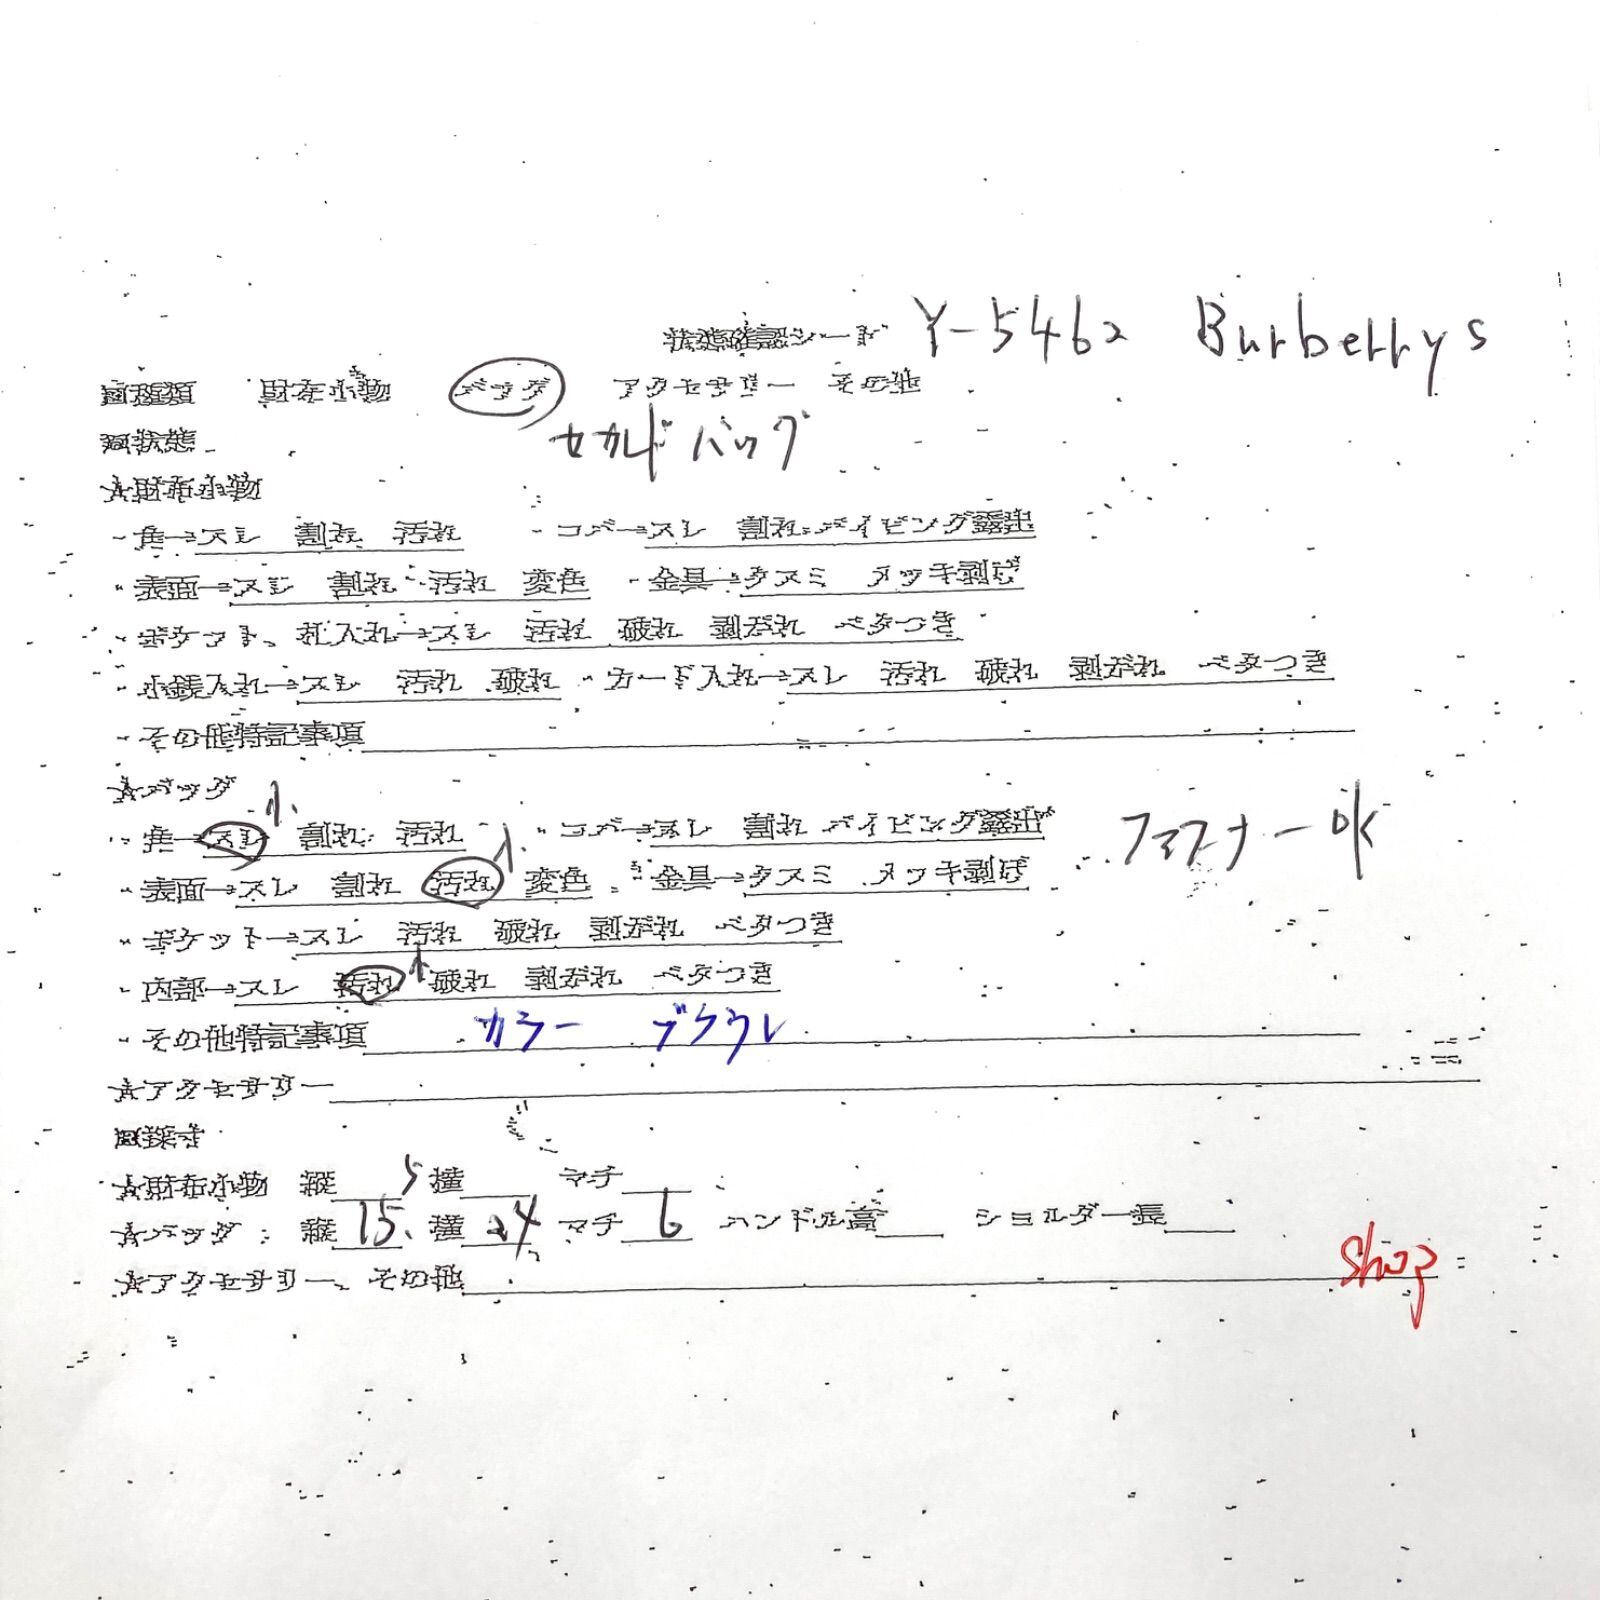 状態確認シート Y-5462 Burberrys
■種類 財布小物 バッグ アクセサリー その他
■状態 セカンドバッグ
☆財布小物
・角→スレ 割れ 汚れ ・コバ→スレ 割れ パイピング露出
・表面→スレ 割れ 汚れ 変色 ・金具→クスミ メッキ剥げ
・ポケット、札入れ→スレ 汚れ 破れ 剥がれ ベタつき
・小銭入れ→スレ 汚れ 破れ ・カード入れ→スレ 汚れ 破れ 剥がれ ベタつき
・その他特記事項
☆バッグ
・角→スレ 小 割れ 汚れ ・コバ→スレ 割れ パイピング露出 ファスナーOK
・表面→スレ 割れ 汚れ 小 変色 ・金具→クスミ メッキ剥げ
・ポケット→スレ 汚れ 破れ 剥がれ ベタつき
・内部→スレ 汚れ 小 破れ 剥がれ ベタつき
・その他特記事項 カラー ブラウン
☆アクセサリー
■採寸
☆財布小物 縦 横 マチ
☆バッグ: 縦15.5 横24 マチ6 ハンドル高 ショルダー長
☆アクセサリー、その他 Shop